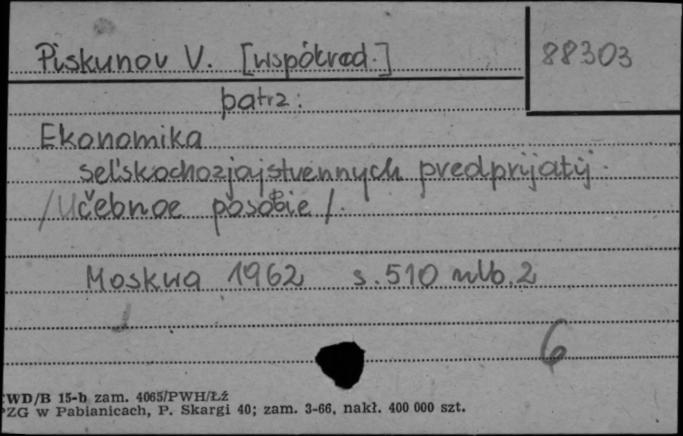 Piskunov V. [współred.] 88303
patrz:
Ekonomika
sel'skochozjajstvennych predprijatij.
/Učebnoe posobie/.
Moskwa 1962 s.510 nlb.2
6
WD/B 15-b zam. 4065/PWH/Łź
PZG w Pabianicach, P. Skargi 40; zam. 3-66, nakł. 400 000 szt.